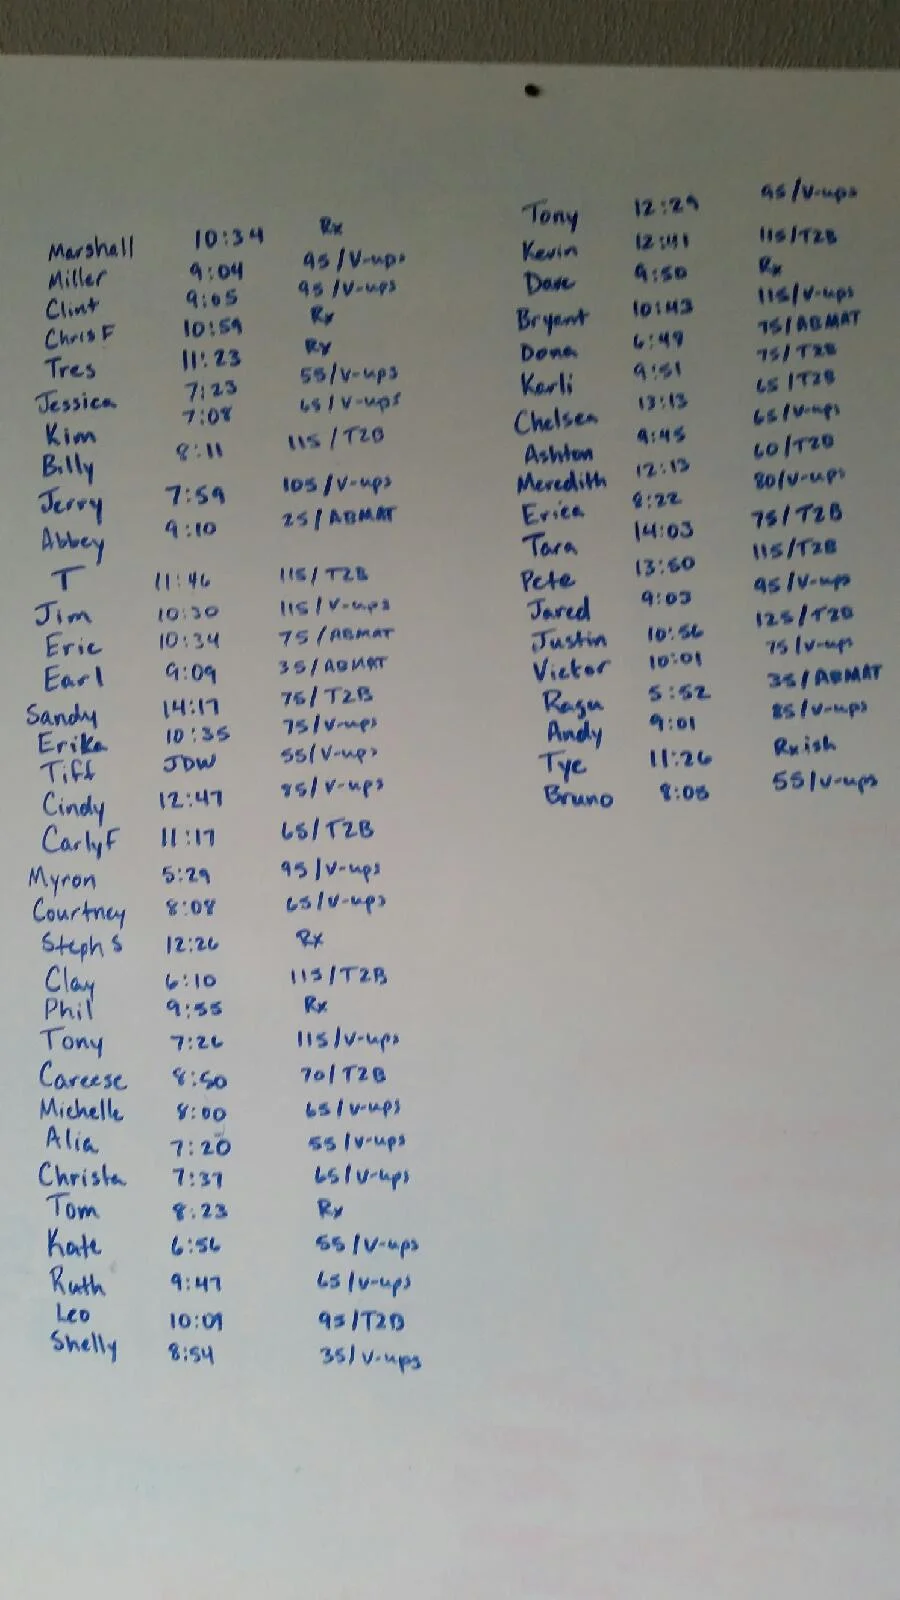 Marshall 10:34 Rx
Miller 9:04 95/V-ups
Clint 9:05 95/V-ups
Chris F 10:59 Rx
Tres 11:23 Rx
Jessica 7:23 55/V-ups
Kim 7:08 65/V-ups
Billy 8:11 115/T2B
Jerry 7:59 105/V-ups
Abbey 9:10 25/ABMAT
T 11:46 115/T2B
Jim 10:30 115/V-ups
Eric 10:34 75/ABMAT
Earl 9:09 35/ABMAT
Sandy 14:17 75/T2B
Erika 10:35 75/V-ups
Tiff JDW 55/V-ups
Cindy 12:47 85/V-ups
Carly F 11:17 65/T2B
Myron 5:29 95/V-ups
Courtney 8:08 65/V-ups
Steph S 12:26 Rx
Clay 6:10 115/T2B
Phil 9:55 Rx
Tony 7:26 115/V-ups
Careese 8:50 70/T2B
Michelle 8:00 65/V-ups
Alia 7:20 55/V-ups
Christa 7:37 65/V-ups
Tom 8:23 Rx
Kate 6:56 55/V-ups
Ruth 9:47 65/V-ups
Leo 10:09 95/T2B
Shelly 8:54 35/V-ups
Tony 12:29 95/V-ups
Kevin 12:41 115/T2B
Dave 9:50 Rx
Bryant 10:43 115/V-ups
Dona 6:49 75/ABMAT
Karli 9:51 75/T2B
Chelsea 13:13 65/T2B
Ashton 9:45 65/V-ups
Meredith 12:13 60/T2B
Erica 8:22 80/V-ups
Tara 14:03 75/T2B
Pete 13:50 115/T2B
Jared 9:03 95/V-ups
Justin 10:56 125/T2B
Victor 10:01 75/V-ups
Ragu 5:52 35/ABMAT
Andy 9:01 85/V-ups
Tye 11:26 Rxish
Bruno 8:05 55/V-ups